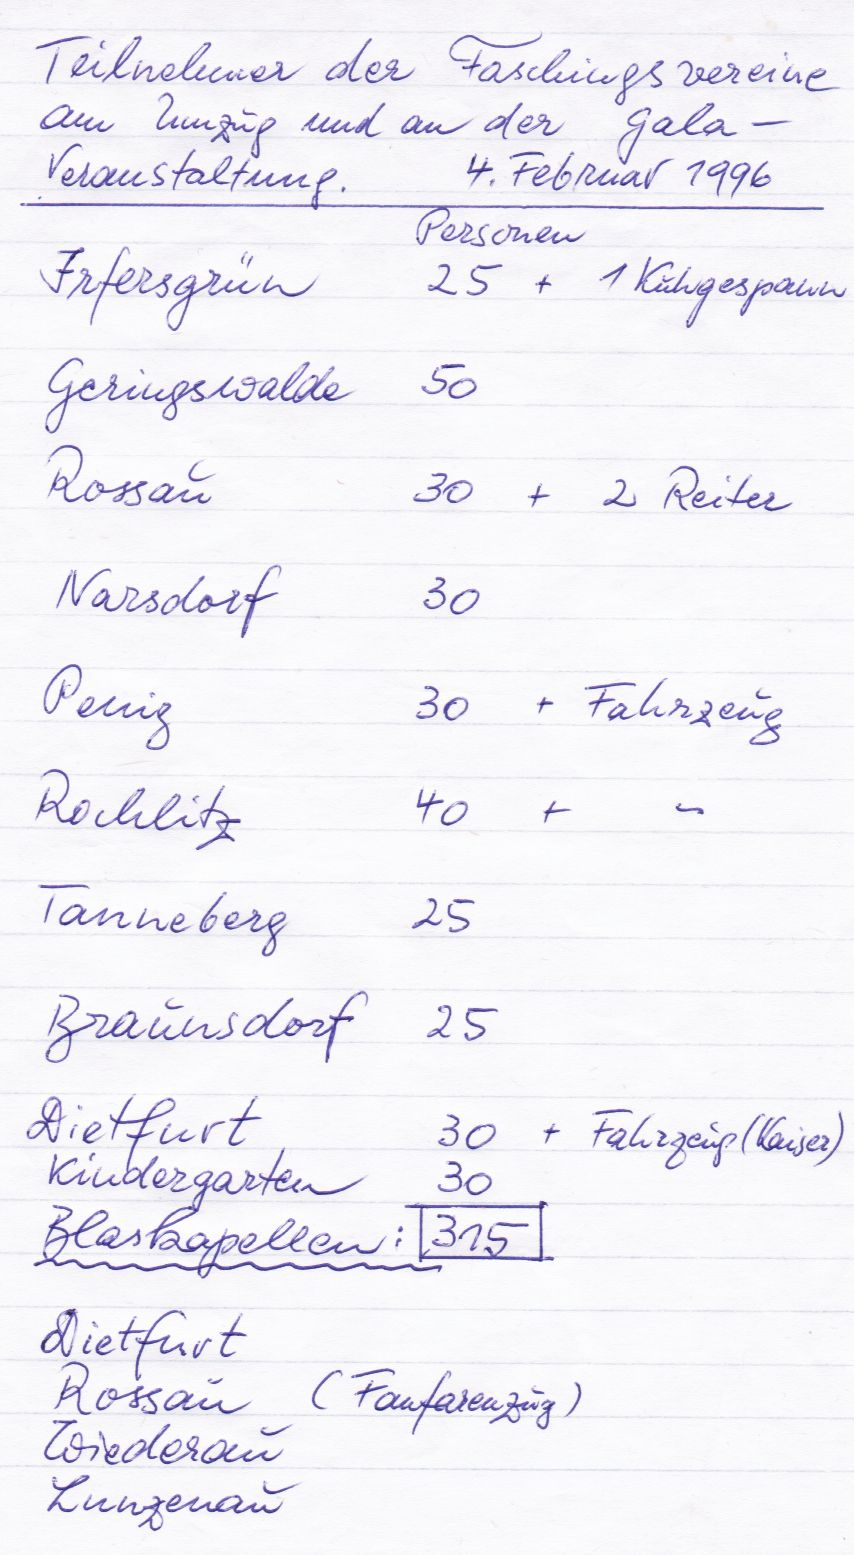 Teilnehmer der Faschingsvereine
am Umzug und an der Gala-
Veranstaltung. 4. Februar 1996
Personen
Irfersgrün 25 + 1 Kuhgespann
Geringswalde 50
Rossau 30 + 2 Reiter
Narsdorf 30
Penig 30 + Fahrzeug
Rochlitz 40 + ~
Tanneberg 25
Braunsdorf 25
Dietfurt 30 + Fahrzeug (Kaiser)
Kindergarten 30
Blaskapellen: 315
Dietfurt
Rossau (Fanfarenzug)
Wiederau
Lunzenau